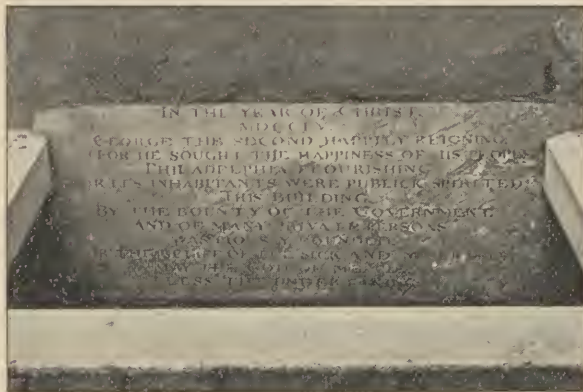 IN THE YEAR OF CHRIST
MDCCLV
GEORGE THE SECOND HAPPILY REIGNING
(FOR HE SOUGHT THE HAPPINESS OF HIS PEOPLE)
PHILADELPHIA FLOURISHING
(FOR ITS INHABITANTS WERE PUBLICK SPIRITED)
THIS BUILDING
BY THE BOUNTY OF THE GOVERNMENT
AND OF MANY PRIVATE PERSONS
WAS PIOUSLY FOUNDED
FOR THE RELIEF OF THE SICK AND
MAY THE GOD OF MERCIES
BLESS THE UNDERTAKING